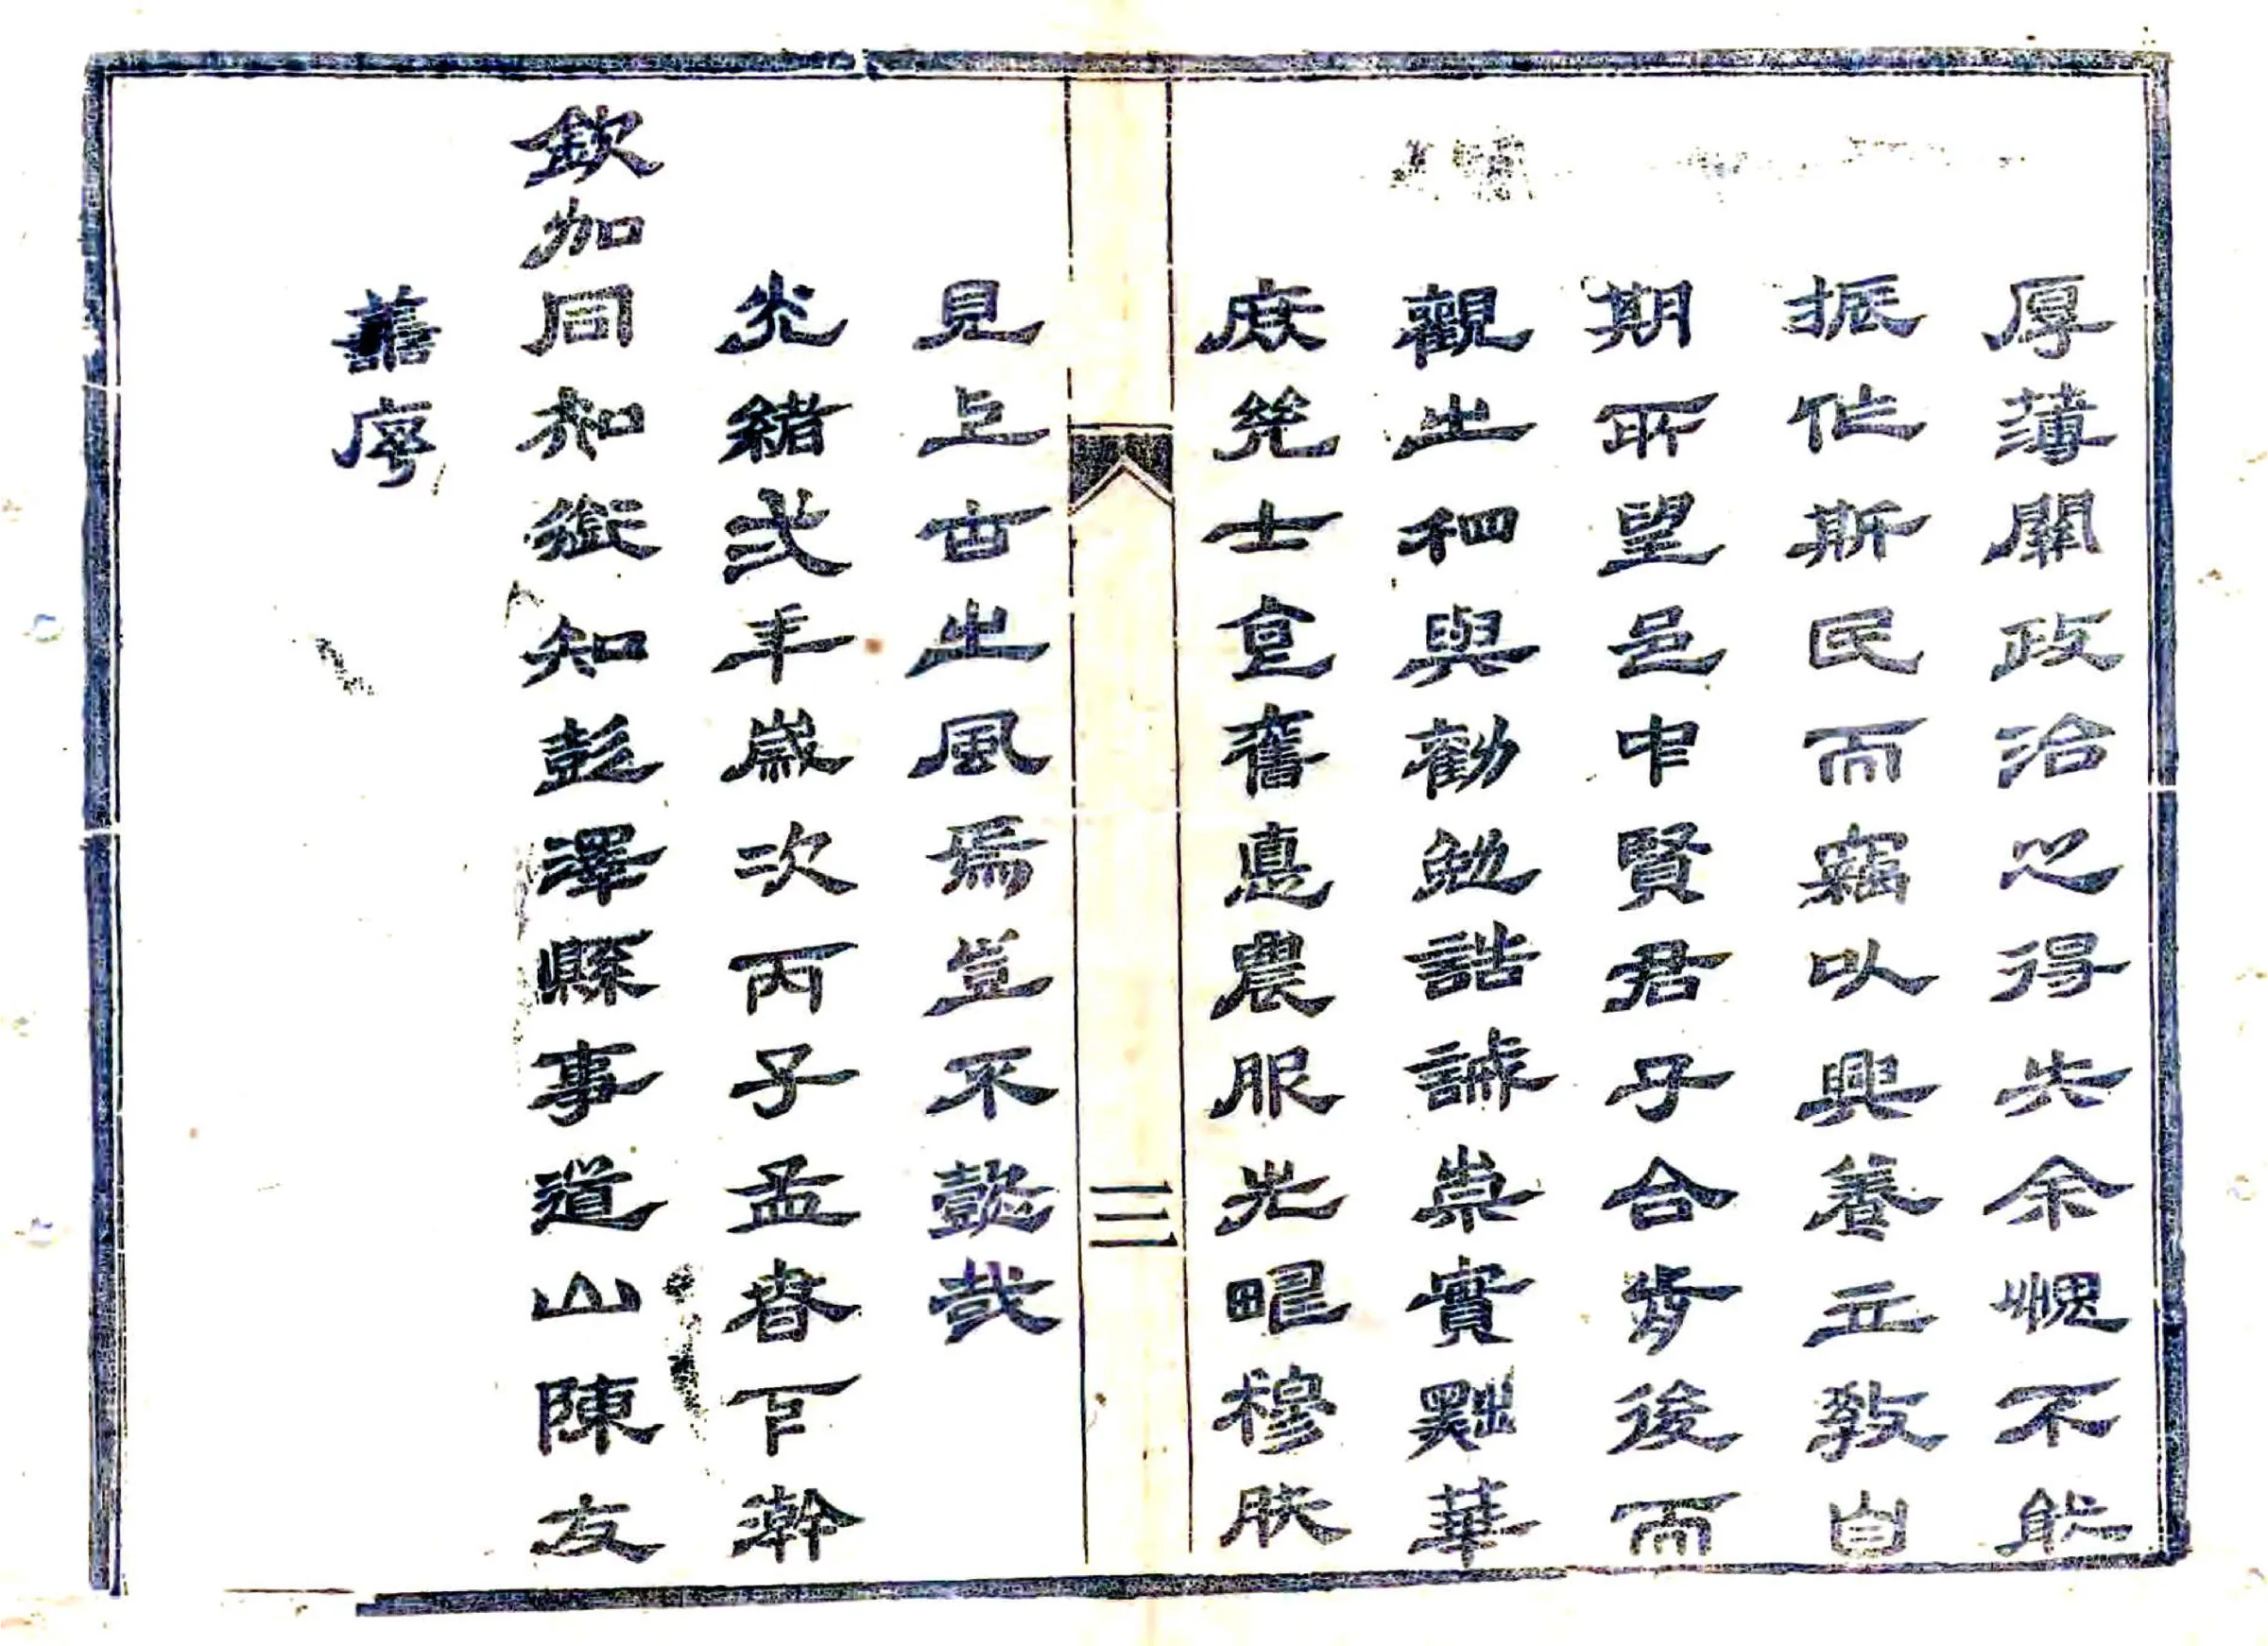 厚薄關政治之得失余愧不能
振作斯民而竊以興養立教自
期所望邑中賢君子合歬後而
觀之細與勸勉誥誡崇實黜華
庶幾士食舊悳農服先疇穆肰
三
見上古之風焉豈不懿哉
光緒弐年歲次丙子孟春下澣
欽加同知銜知彭澤縣事道山陳友
善序